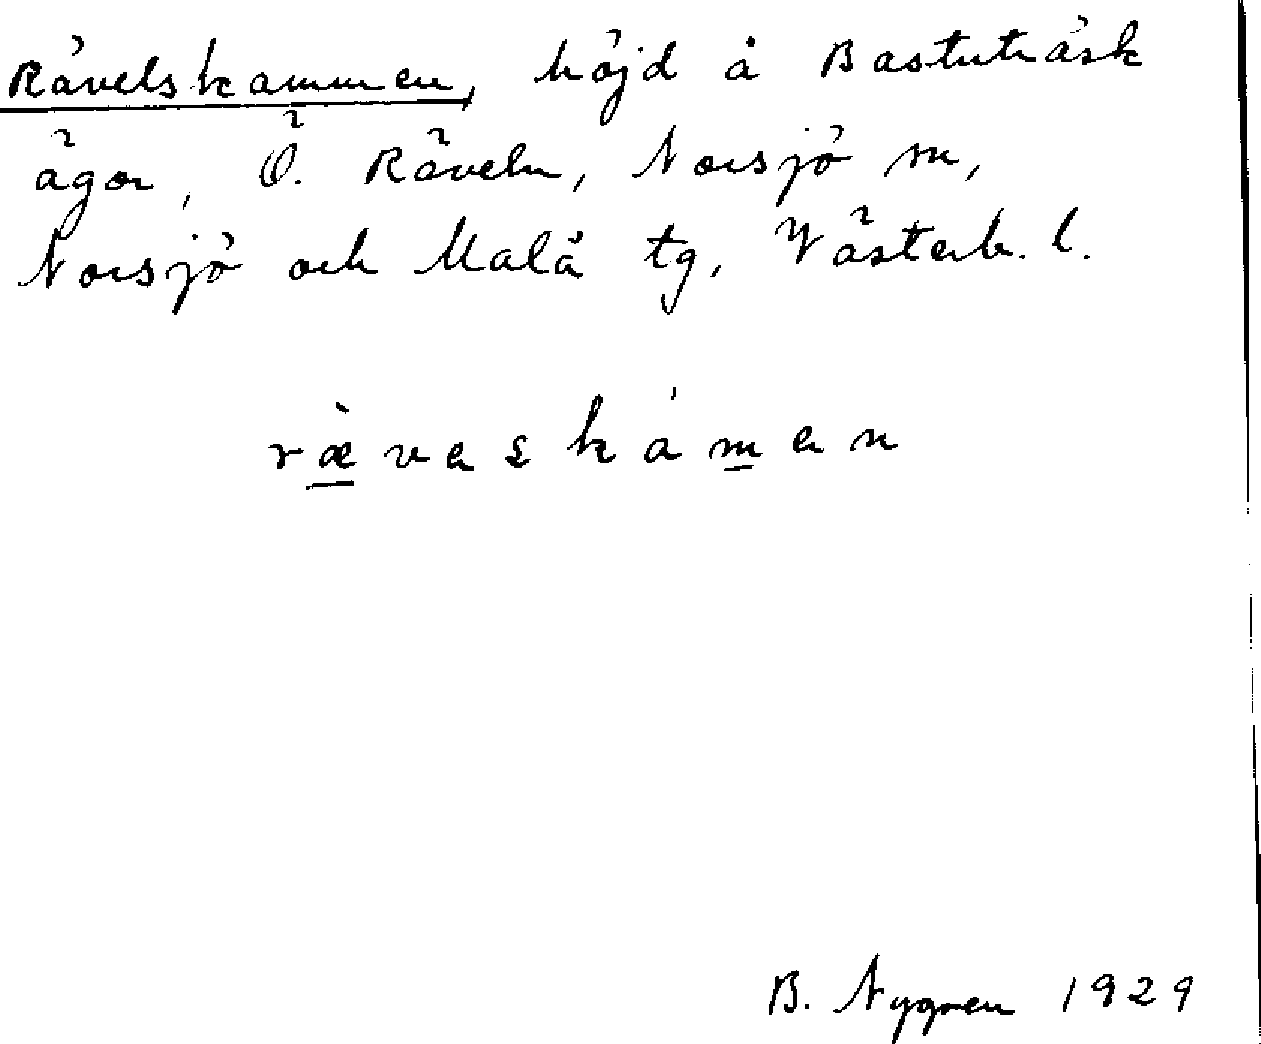 Rävelskammen, höjd å Bastuträsk
ägor, Ö. Räveln, Norsjö sn,
Norsjö och Malå tg, Västerb. l.
ræ̀vεskámεn
B. Nygren 1929